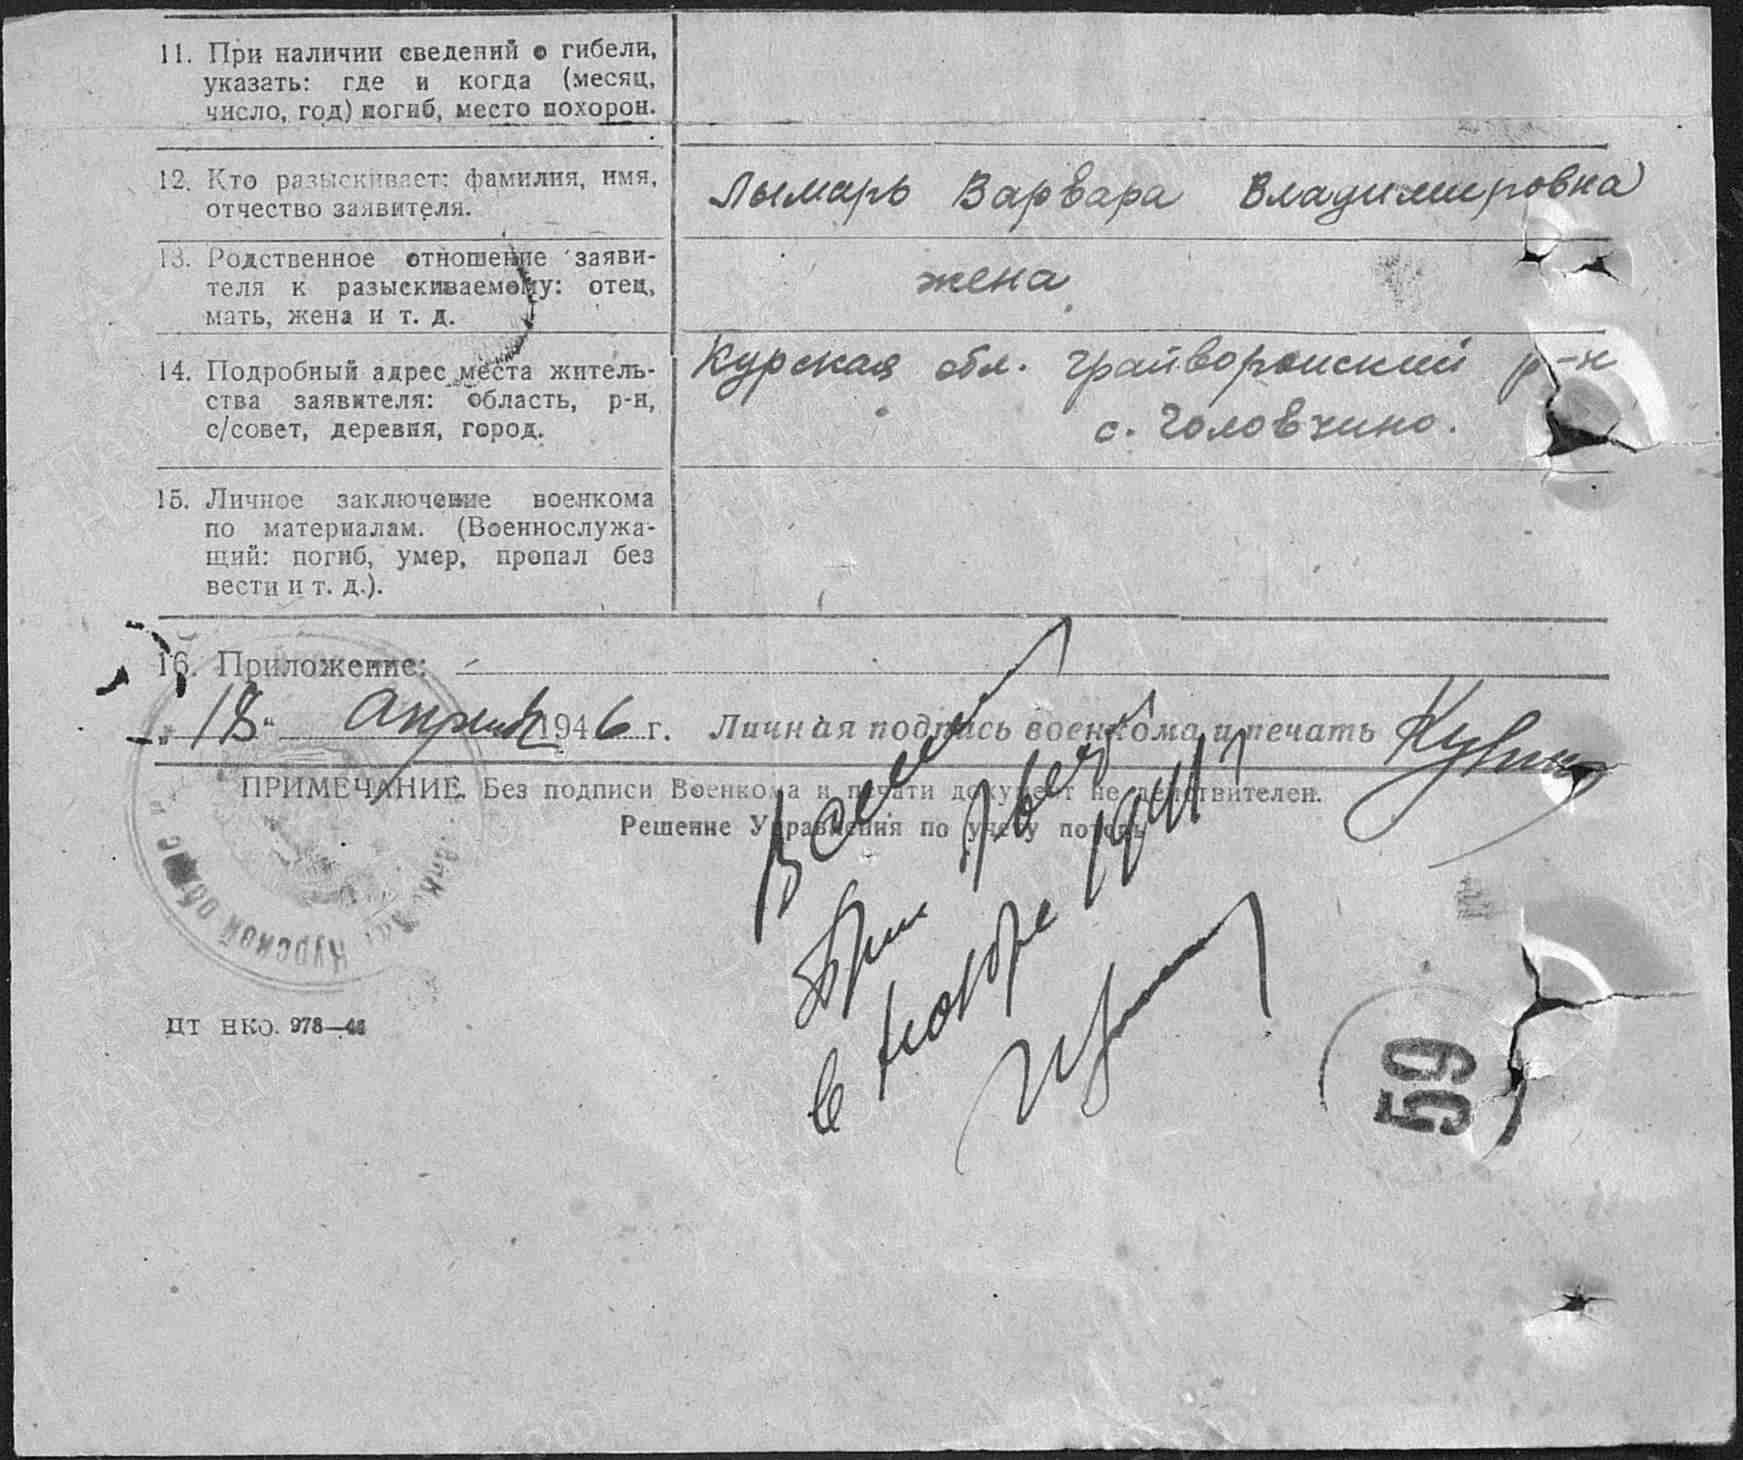 11. При наличии сведений о гибели,
указать: где и когда (месяц,
число, год) погиб, место похорон.
12. Кто разыскивает: фамилия, имя,
отчество заявителя.
Лымарь Варвара Владимировна
13. Родственное отношение заяви-
теля к разыскиваемому: отец,
мать, жена и т. д.
жена
14. Подробный адрес места житель-
ства заявителя: область, р-н,
с/совет, деревня, город.
Курская обл. Грайворонский р-н
с. Головчино.
15. Личное заключение военкома
по материалам. (Военнослужа-
щий: погиб, умер, пропал без
вести и т. д.).
16. Приложение:
„18“ апреля 1946 г. Личная подпись военкома и печать
ПРИМЕЧАНИЕ. Без подписи Военкома и печати документ не действителен.
Решение Управления по учету потерь
в ноябре
Курской
ЦТ НКО. 978—44
59